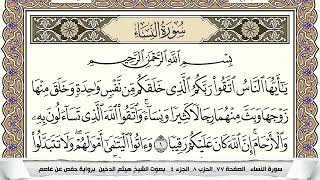 سُورَةُ النِّسَاءِ
بِسْمِ اللَّهِ الرَّحْمَٰنِ الرَّحِيمِ
يَٰٓأَيُّهَا النَّاسُ اتَّقُوا۟ رَبَّكُمُ الَّذِى خَلَقَكُم مِّن نَّفْسٍ وَٰحِدَةٍ وَخَلَقَ مِنْهَا
زَوْجَهَا وَبَثَّ مِنْهُمَا رِجَالًا كَثِيرًا وَنِسَآءً ۚ وَاتَّقُوا۟ اللَّهَ الَّذِى تَسَآءَلُونَ بِهِۦ
وَالْأَرْحَامَ ۚ إِنَّ اللَّهَ كَانَ عَلَيْكُمْ رَقِيبًا ١ وَءَاتُوا۟ الْيَتَٰمَىٰٓ أَمْوَٰلَهُمْ ۖ وَلَا تَتَبَدَّلُوا۟
سورة النساء . الصفحة ٧٧ الحزب ٨ الجزء ٤ بصوت الشيخ هيثم الدخين برواية حفص عن عاصم